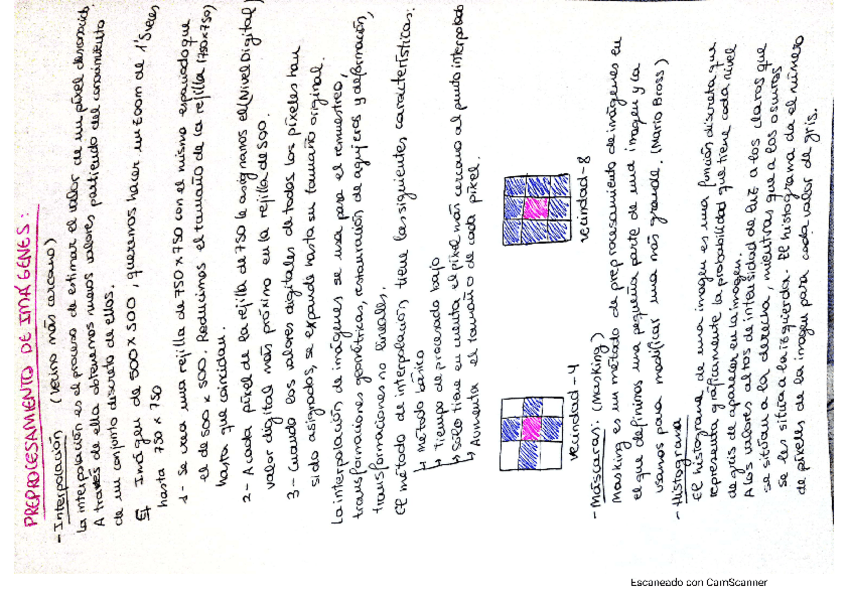 PREPROCESAMIENTO DE IMÁGENES:
- Interpolación (Vecino más cercano)
la interpolación es el proceso de estimar el valor de un píxel desconocido.
A través de ella obtenemos nuevos valores partiendo del conocimiento
de un conjunto discreto de ellos.
Ej Imagen de 500 x 500, queremos hacer un zoom de 1'5 veces
hasta 750 x 750
1- Se crea una rejilla de 750 x 750 con el mismo espaciado que
el de 500 x 500. Reducimos el tamaño de la rejilla (750x750)
hasta que coincidan.
2- A cada píxel de la rejilla de 750 le asignamos el (Nivel Digital)
valor digital más próximo en la rejilla de 500.
3- Cuando los valores digitales de todos los píxeles han
sido asignados, se expande hasta su tamaño original.
La interpolación de imágenes se usa para el remuestreo,
transformaciones geométricas, restauración de agujeros y deformación,
transformaciones no lineales.
El método de interpolación tiene las siguientes características:
↳ Método básico
↳ Tiempo de procesado bajo
↳ Sólo tiene en cuenta el píxel más cercano al punto interpolado
↳ Aumenta el tamaño de cada píxel.
vecindad-4
vecindad-8
- Máscaras: (Masking)
Masking es un método de preprocesamiento de imágenes en
el que definimos una pequeña parte de una imagen y la
usamos para modificar una más grande. (Mario Bross)
- Histograma
El histograma de una imagen es una función discreta que
representa gráficamente la probabilidad que tiene cada nivel
de gris de aparecer en la imagen.
A los valores altos de intensidad de luz a los claros que
se sitúan a la derecha, mientras que a los oscuros
se les sitúa a la izquierda. El histograma da el número
de píxeles de la imagen para cada valor de gris.
Escaneado con CamScanner